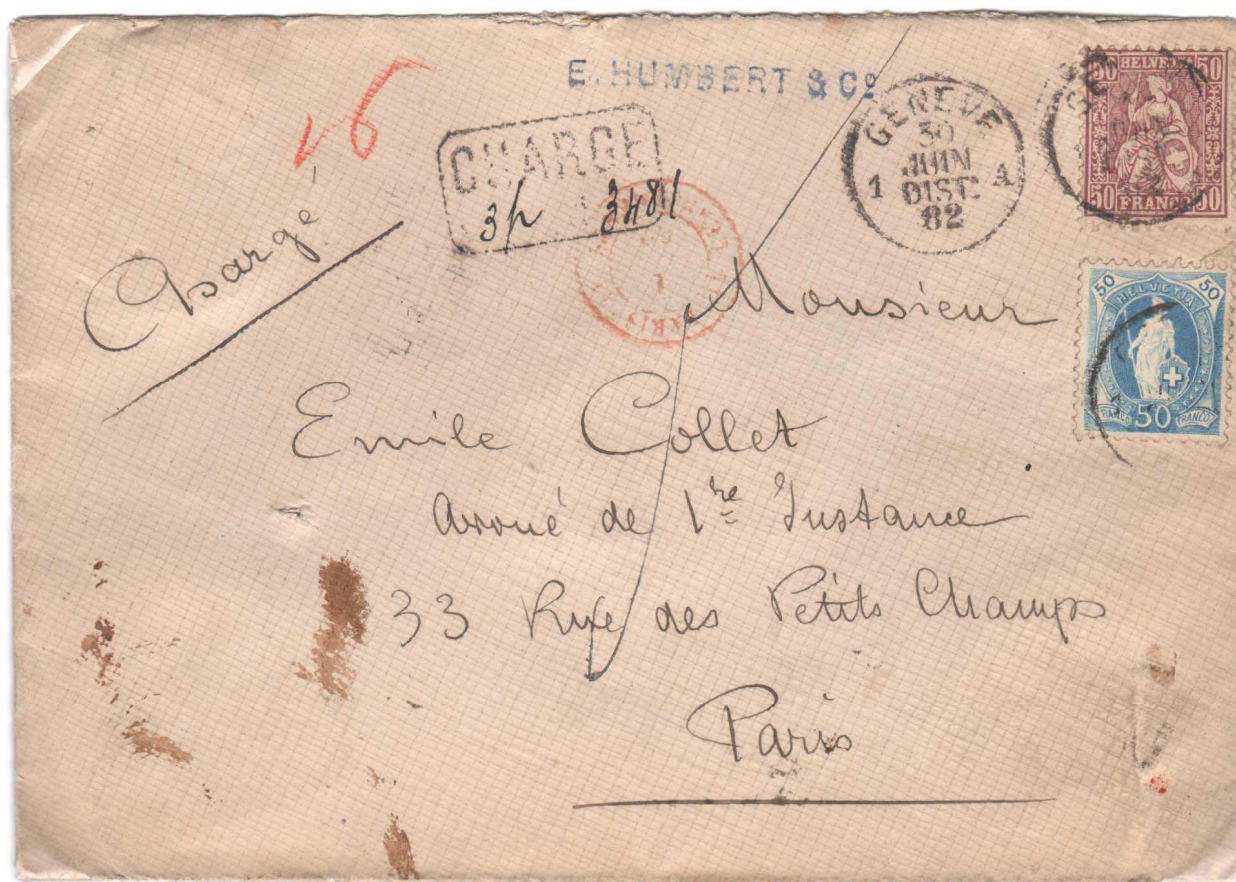 E. HUMBERT & Cº
CHARGÉ
3p 3481
GENEVE
30
JUIN
DIST.
82
1 A
50 HELVETIA 50
50 FRANCO 50
50 HELVETIA 50
FRANCO 50 FRANCO
PARIS
1
Chargé
Monsieur
Emile Collet
Avoué de 1re Instance
33 Rue des Petits Champs
Paris